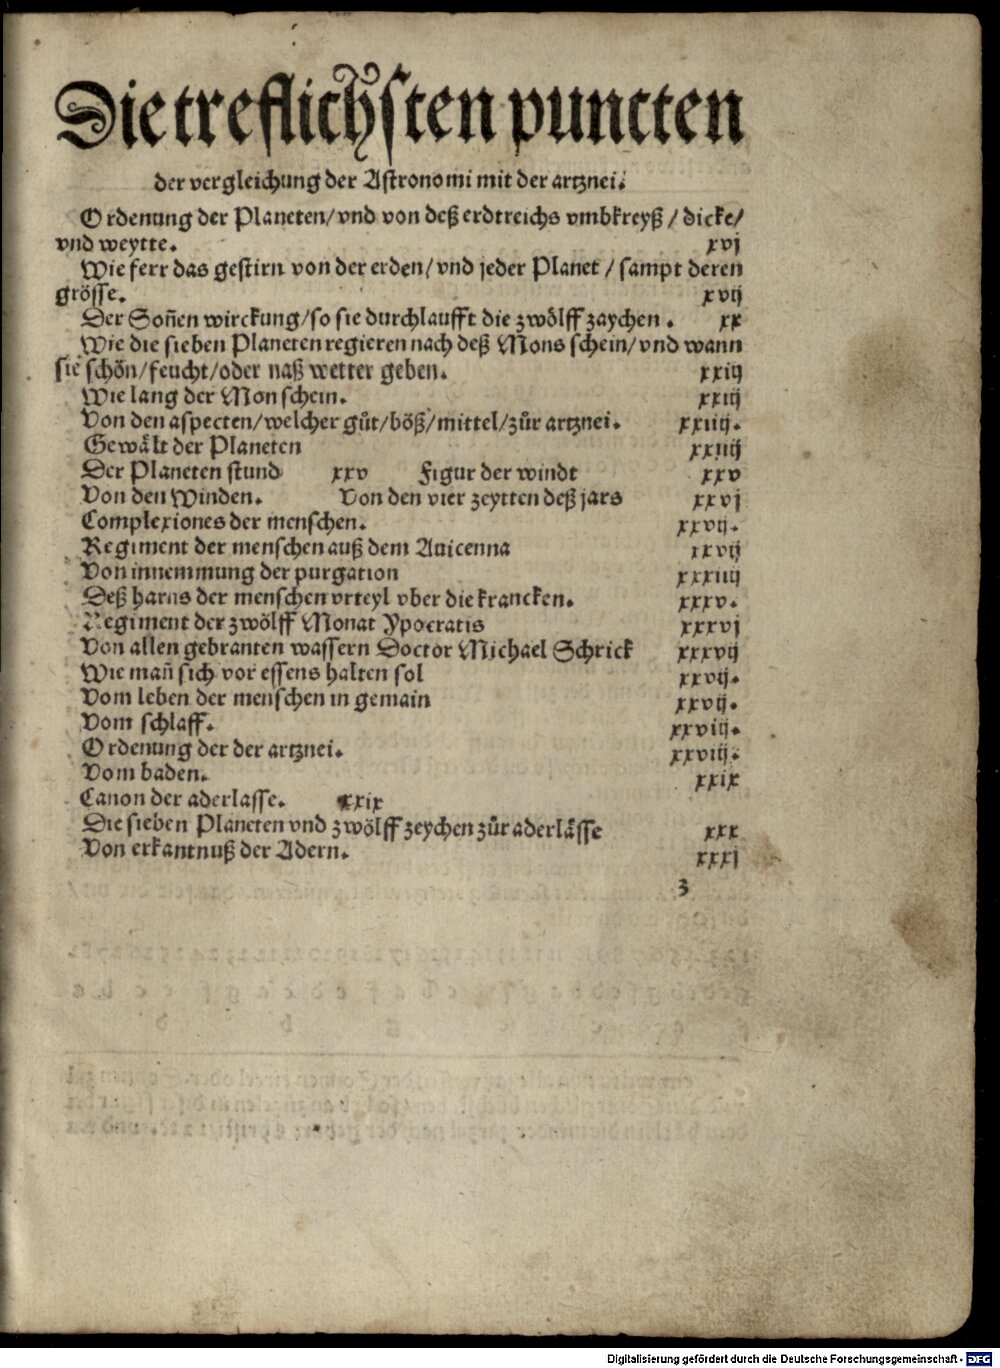 Die treflichsten puncten
der vergleichung der Astronomi mit der artznei.
Ordenung der Planeten/vnd von deß erdtreichs vmbkreyß/dicke/
vnd weytte. xvj
Wie ferr das gestirn von der erden/vnd jeder Planet/sampt deren
grösse. xvij
Der Soñen wirckung/so sie durchlaufft die zwölff zaychen. xx
Wie die sieben Planeten regieren nach deß Mons schein/vnd wann
sie schön/feucht/oder naß wetter geben. xxiij
Wie lang der Mon schein. xxiij
Von den aspecten/welcher gůt/böß/mittel/zůr artznei. xxiiij.
Gewält der Planeten xxiiij
Der Planeten stund xxv Figur der windt xxv
Von den Winden. Von den vier zeytten deß jars xxvj
Complexiones der menschen. xxvij.
Regiment der menschen auß dem Auicenna xxvij
Von innemmung der purgation xxxiiij
Deß harns der menschen vrteyl vber die krancken. xxxv.
Regiment der zwölff Monat Ypocratis xxxvj
Von allen gebranten wassern Doctor Michael Schrick xxxvij
Wie mañ sich vor essens halten sol xxvij.
Vom leben der menschen in gemain xxvij.
Vom schlaff. xxviij.
Ordenung der der artznei. xxviij.
Vom baden. xxix
Canon der aderlasse. xxix
Die sieben Planeten vnd zwölff zeychen zůr aderlässe xxx
Von erkantnuß der Adern. xxxj
3
Digitalisierung gefördert durch die Deutsche Forschungsgemeinschaft - DFG